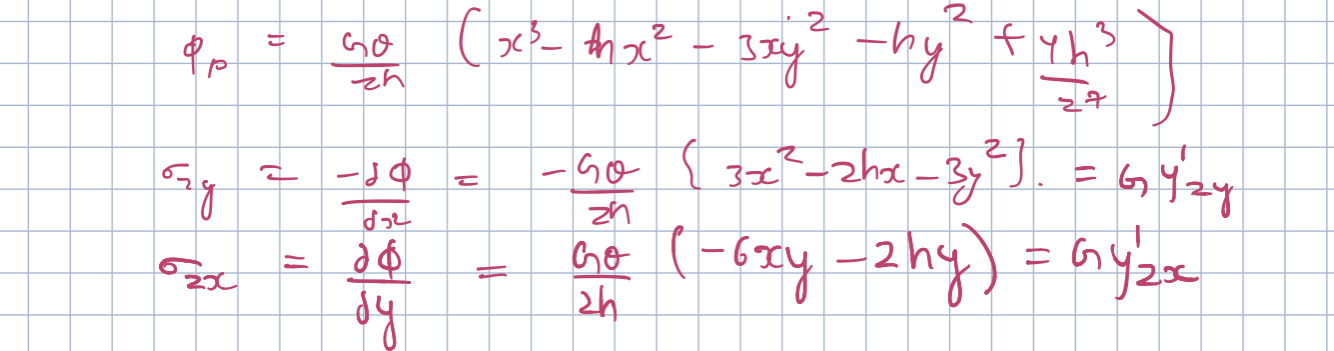 ϕₚ = Gθ/2h (x³ - hx² - 3xy² - hy² + 4h³/27)
σzy = -∂ϕ/∂x = -Gθ/2h {3x² - 2hx - 3y²}. = Gγ'zy
σzx = ∂ϕ/∂y = Gθ/2h (-6xy - 2hy) = Gγ'zx